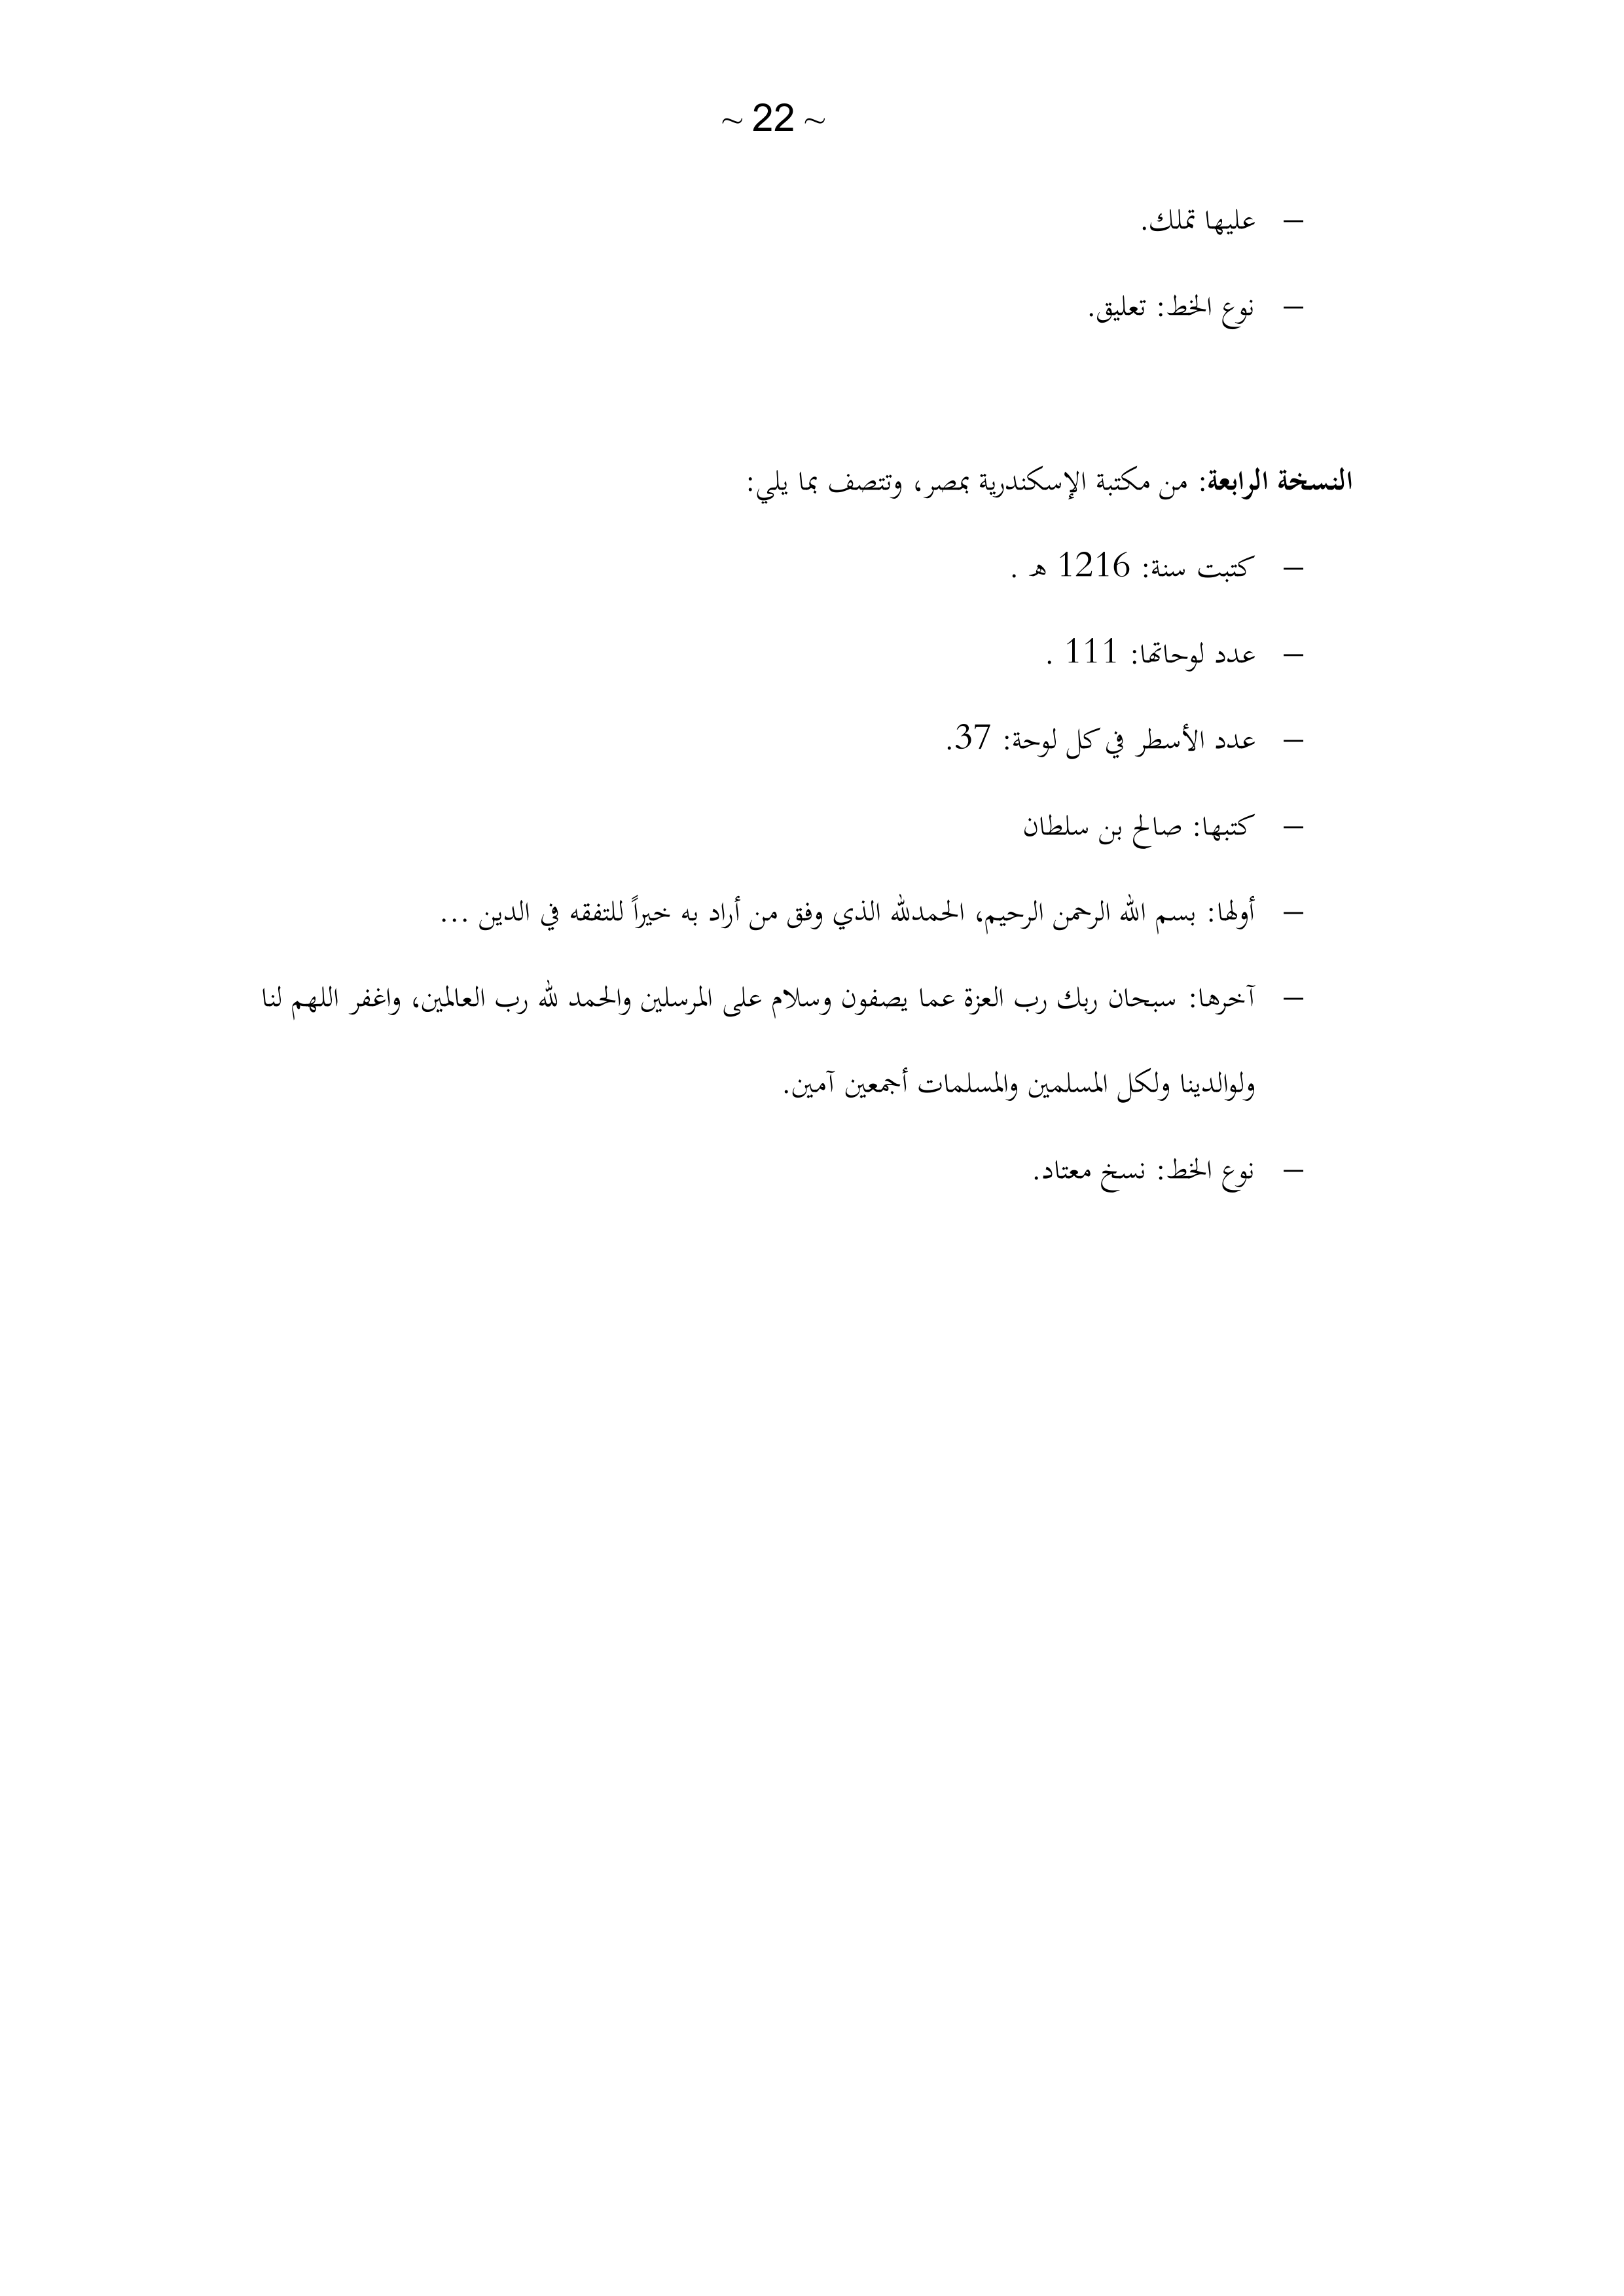 ~ 22 ~
– عليها تملك.
– نوع الخط: تعليق.
النسخة الرابعة: من مكتبة الإسكندرية بمصر، وتتصف بما يلي:
– كتبت سنة: 1216 هـ .
– عدد لوحاتها: 111 .
– عدد الأسطر في كل لوحة: 37.
– كتبها: صالح بن سلطان
– أولها: بسم الله الرحمن الرحيم، الحمدلله الذي وفق من أراد به خيراً للتفقه في الدين ...
– آخرها: سبحان ربك رب العزة عما يصفون وسلام على المرسلين والحمد لله رب العالمين، واغفر اللهم لنا
ولوالدينا ولكل المسلمين والمسلمات أجمعين آمين.
– نوع الخط: نسخ معتاد.